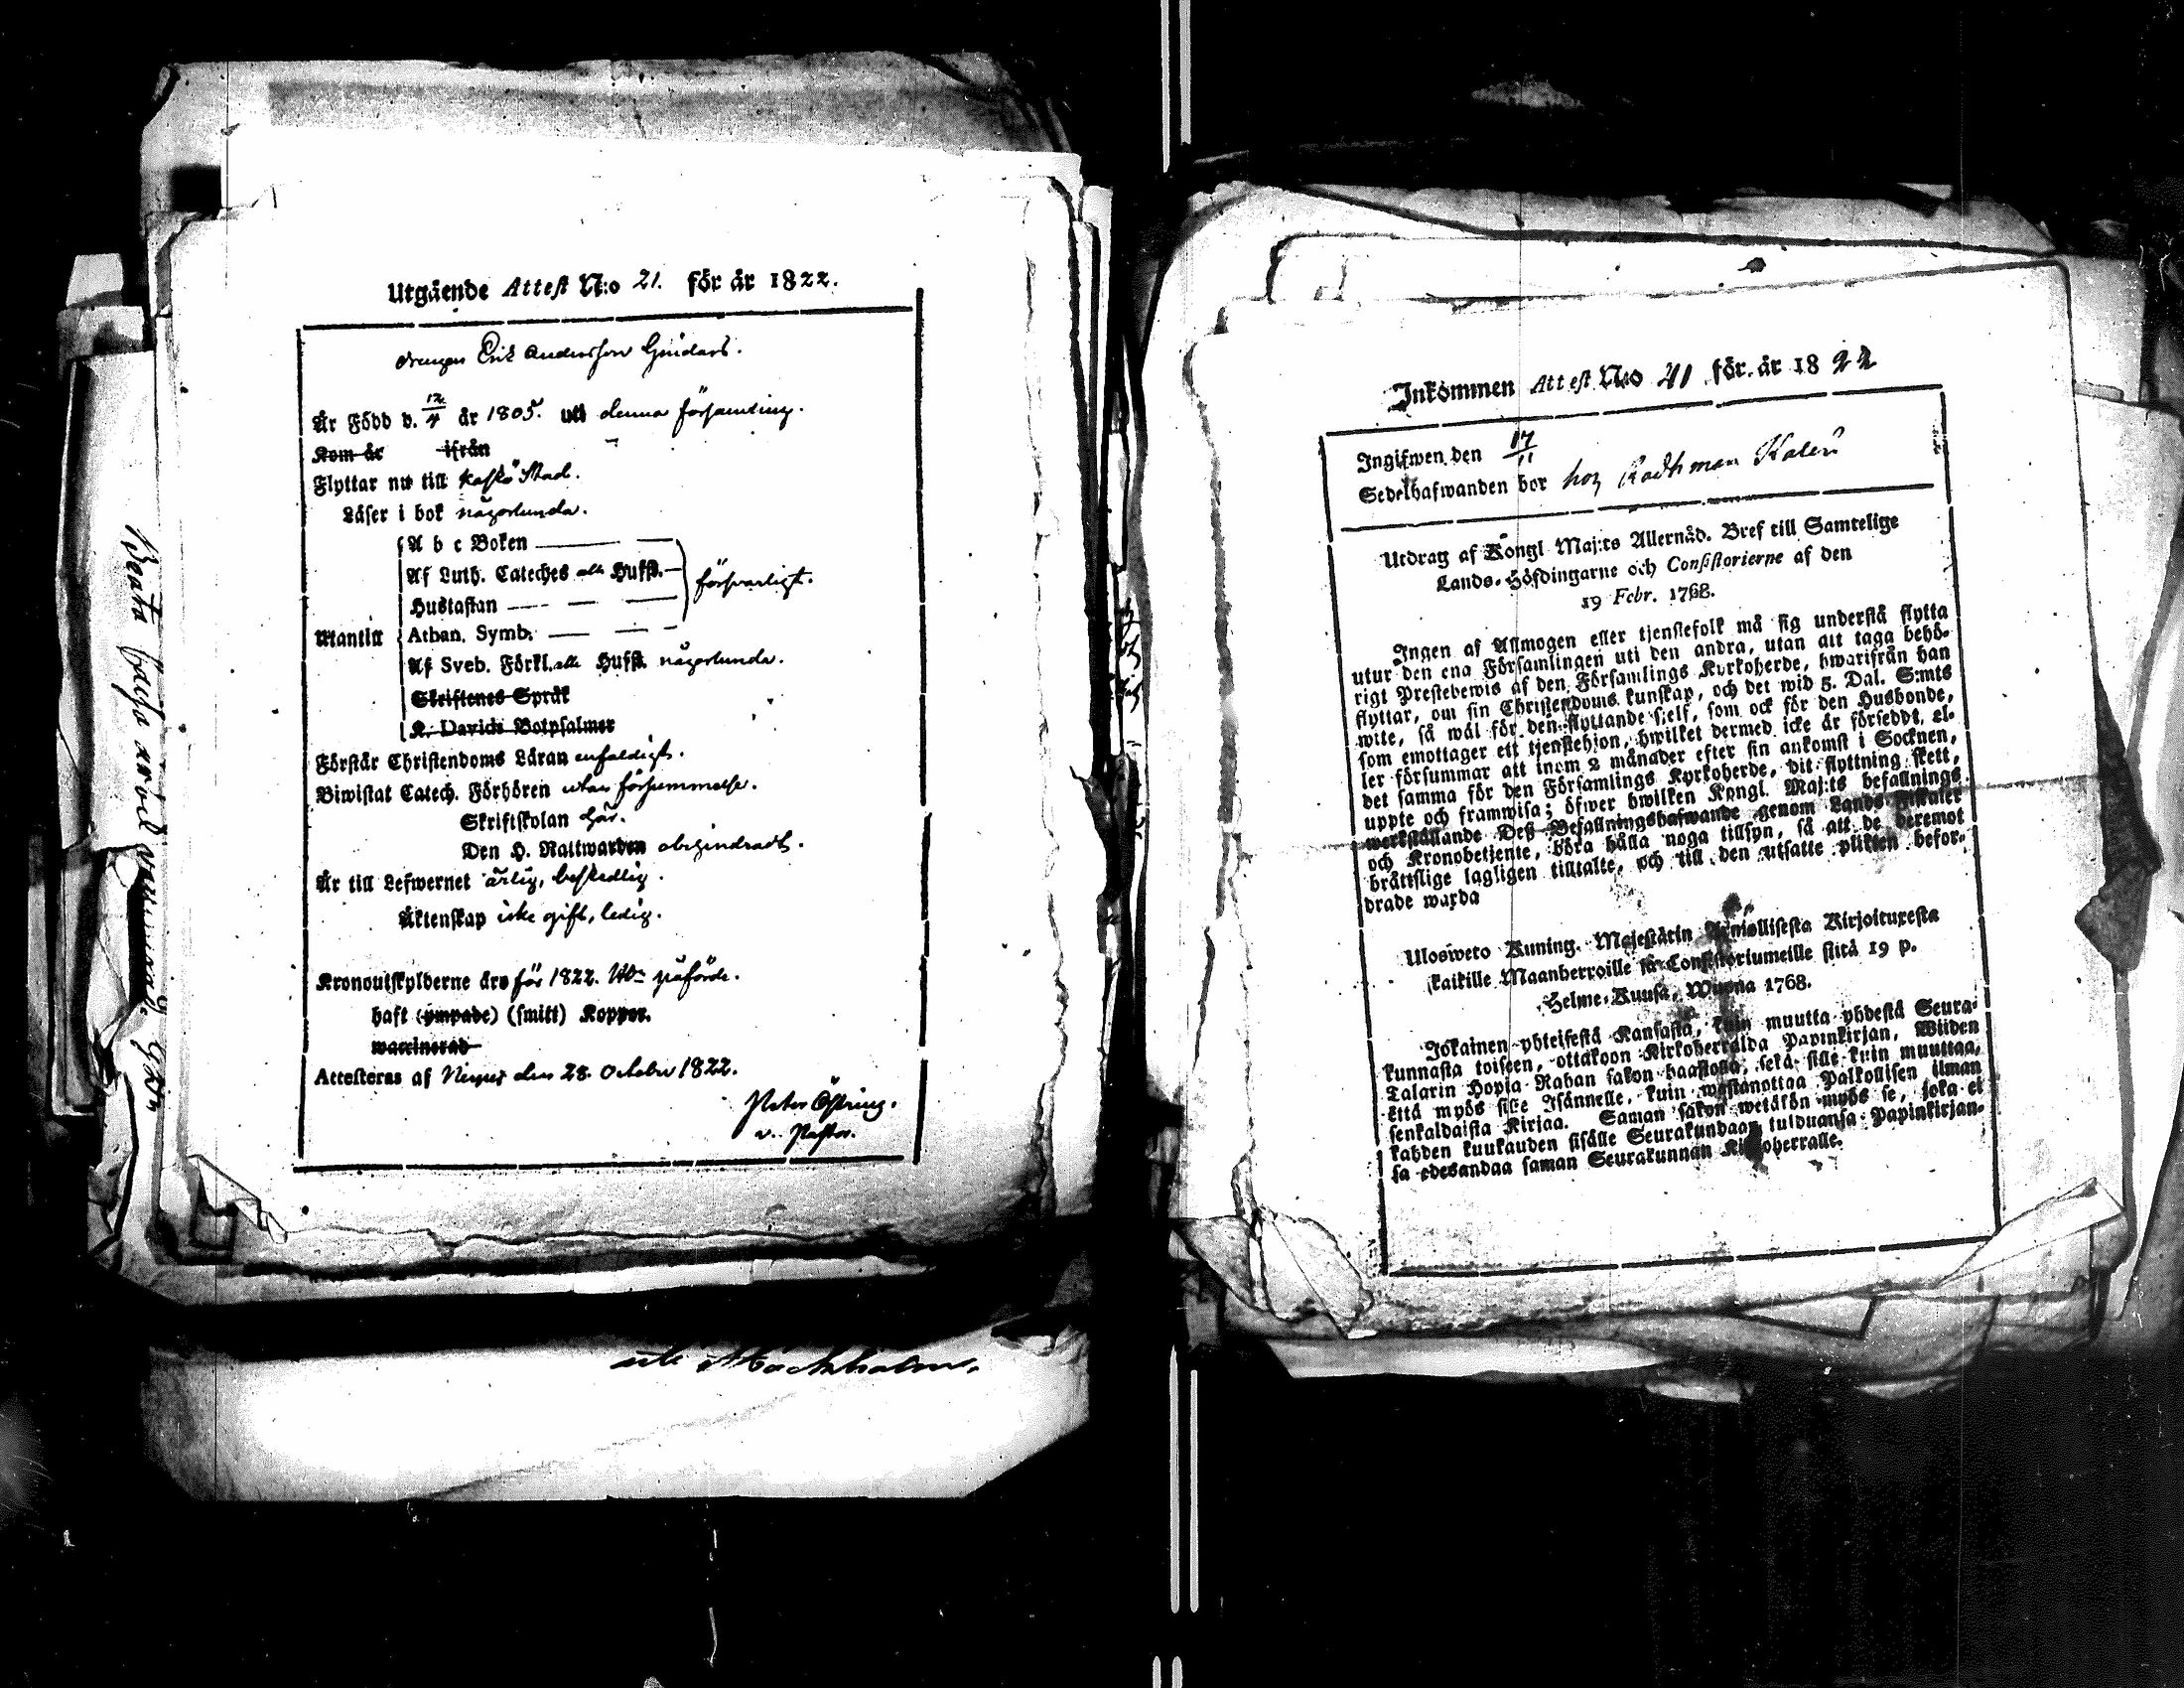 Utgående Attest N:o 21. för år 1822.
drengen Erik Andersson Gindars.
Är Född d. 12/4 år 1805. uti denna församling.
Kom år ifrån
Flyttar nu till Kaskö Stad.
Läser i bok någorlunda.
A b c Boken
Af Luth. Cateches alla Hufst.
försvarligt.
Hustaflan
Utantill
Athan. Symb.
Af Sveb. Förkl. alla Hufst. någorlunda.
Skriftenes Språk
K. Davids Botpsalmer
Förstår Christendoms Läran enfaldigt.
Biwistat Catech. Förhören utan försummelse.
Skriftskolan här.
Den H. Nattwarden obehindradt.
Är till Lefwernet ärlig, beskedlig.
Äktenskap icke gift, ledig.
Kronoutskylderne äro för 1822. påförde.
haft (ympade) (smitt) Koppor.
waccinerad
Attesteras af Nerpes den 28. October 1822.
Peter Östring.
v. Pastor.
Beata Cajsa
Stockholm.
Inkommen Attest N:o 41 för år 1822
Ingifwen den 17/11
Sedelhafwanden bor hos Rådhman Kalén
Utdrag af Kongl Maj:ts Allernåd. Bref till Samtelige
Lands-Höfdingarne och Consistorierne af den
19 Febr. 1768.
Ingen af Allmogen eller tjenstefolk må sig understå flytta
utur den ena Församlingen uti den andra, utan att taga behö-
rigt Prestebewis af den Församlings Kyrkoherde, hwarifrån han
flyttar, om sin Christendoms kunskap, och det wid 5. Dal. S:mts
wite, så wäl för den flyttande sjelf, som ock för den Husbonde,
som emottager ett tjenstehjon, hwilket dermed icke är försedt, el-
ler försummar att inom 2 månader efter sin ankomst i Socknen,
det samma för den Församlings Kyrkoherde, dit flyttning skett,
uppte och framwisa; öfwer hwilken Kongl. Maj:ts befallnings
werkställande Deß Befallningshafwande genom Lands Fiskaler
och Kronobetjente, böra hålla noga tillsyn, så att de deremot
bråttslige lagligen tilltalte, och till den utsatte plikten befor-
drade warda
Ulosweto Kuning. Majestätin Armollisesta Kirjoituxesta
kaikille Maanherroille ja Consistoriumeille siitä 19 p.
Helme-Kuusa, Wuona 1768.
Jokainen yhteisestä Kansasta, kuin muutta yhdestä Seura-
kunnasta toiseen, ottakoon Kirkoherralda Papinkirjan, Wiiden
Talarin Hopia Rahan sakon haastolla, sekä sille kuin muuttaa,
että myös sille Isännelle, kuin wastanottaa Palkollisen ilman
senkaldaista Kirjaa. Saman sakon wetäkön myös se, joka ei
kahden kuukauden sisälle Seurakundaan tulduansa Papinkirjan-
sa edesandaa saman Seurakunnan Kirkoherralle.